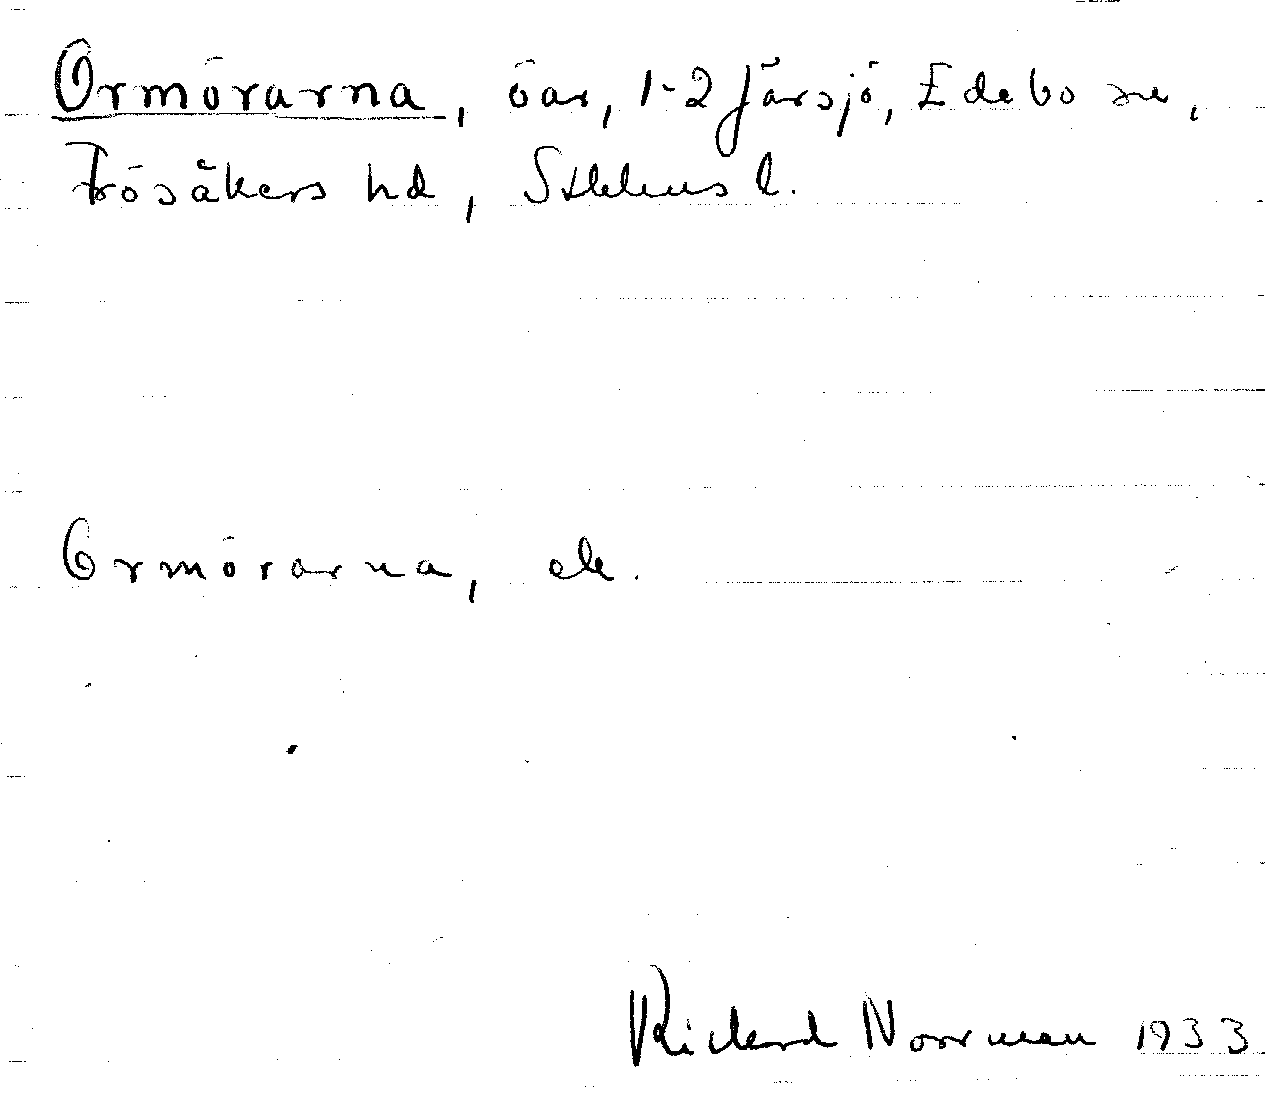 Ormörarna, öar, 1-2 Järsjö, Edebo sn,
Frösåkers hd, Sthlms l.
Ormörarna, ek.
Richard Norrman 1933